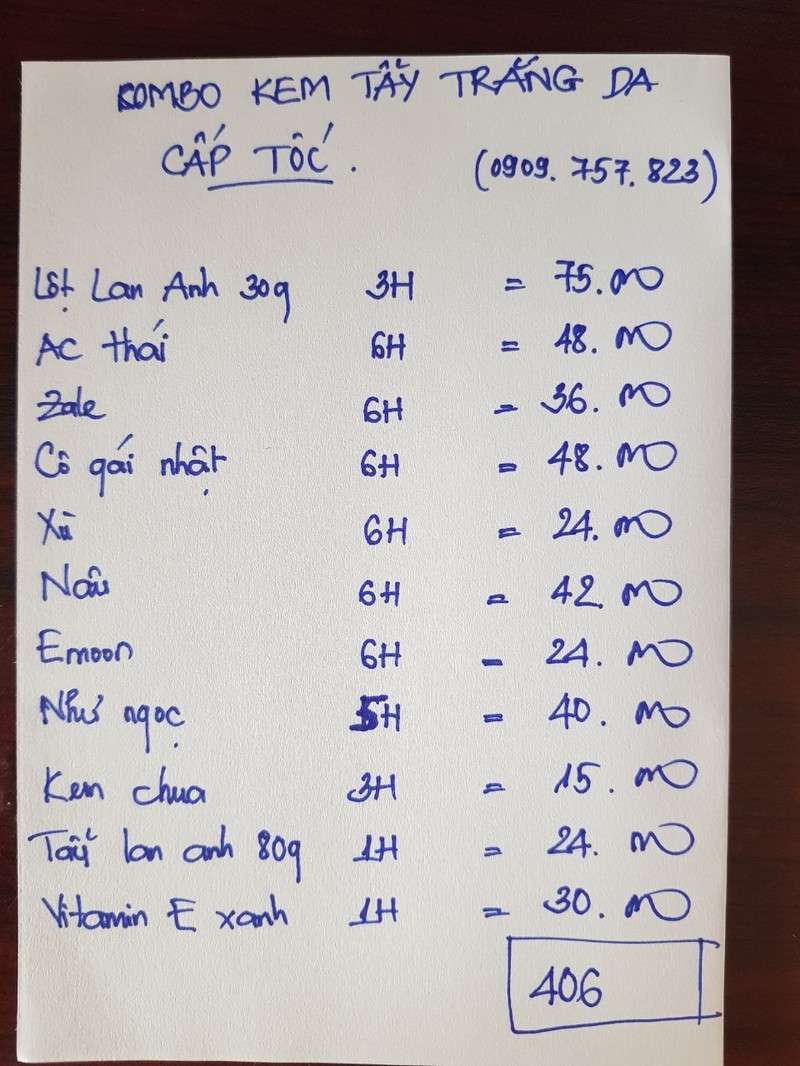 KOMBO KEM TẨY TRẮNG DA
CẤP TỐC. (0909.757.823)
Lột Lan Anh 30g 3H = 75.000
AC thái 6H = 48.000
Zale 6H = 36.000
Cô gái nhật 6H = 48.000
Xù 6H = 24.000
Nâu 6H = 42.000
Emoon 6H = 24.000
Như ngọc 5H = 40.000
Kem chua 3H = 15.000
Tẩy lan anh 80g 1H = 24.000
Vitamin E xanh 1H = 30.000
406